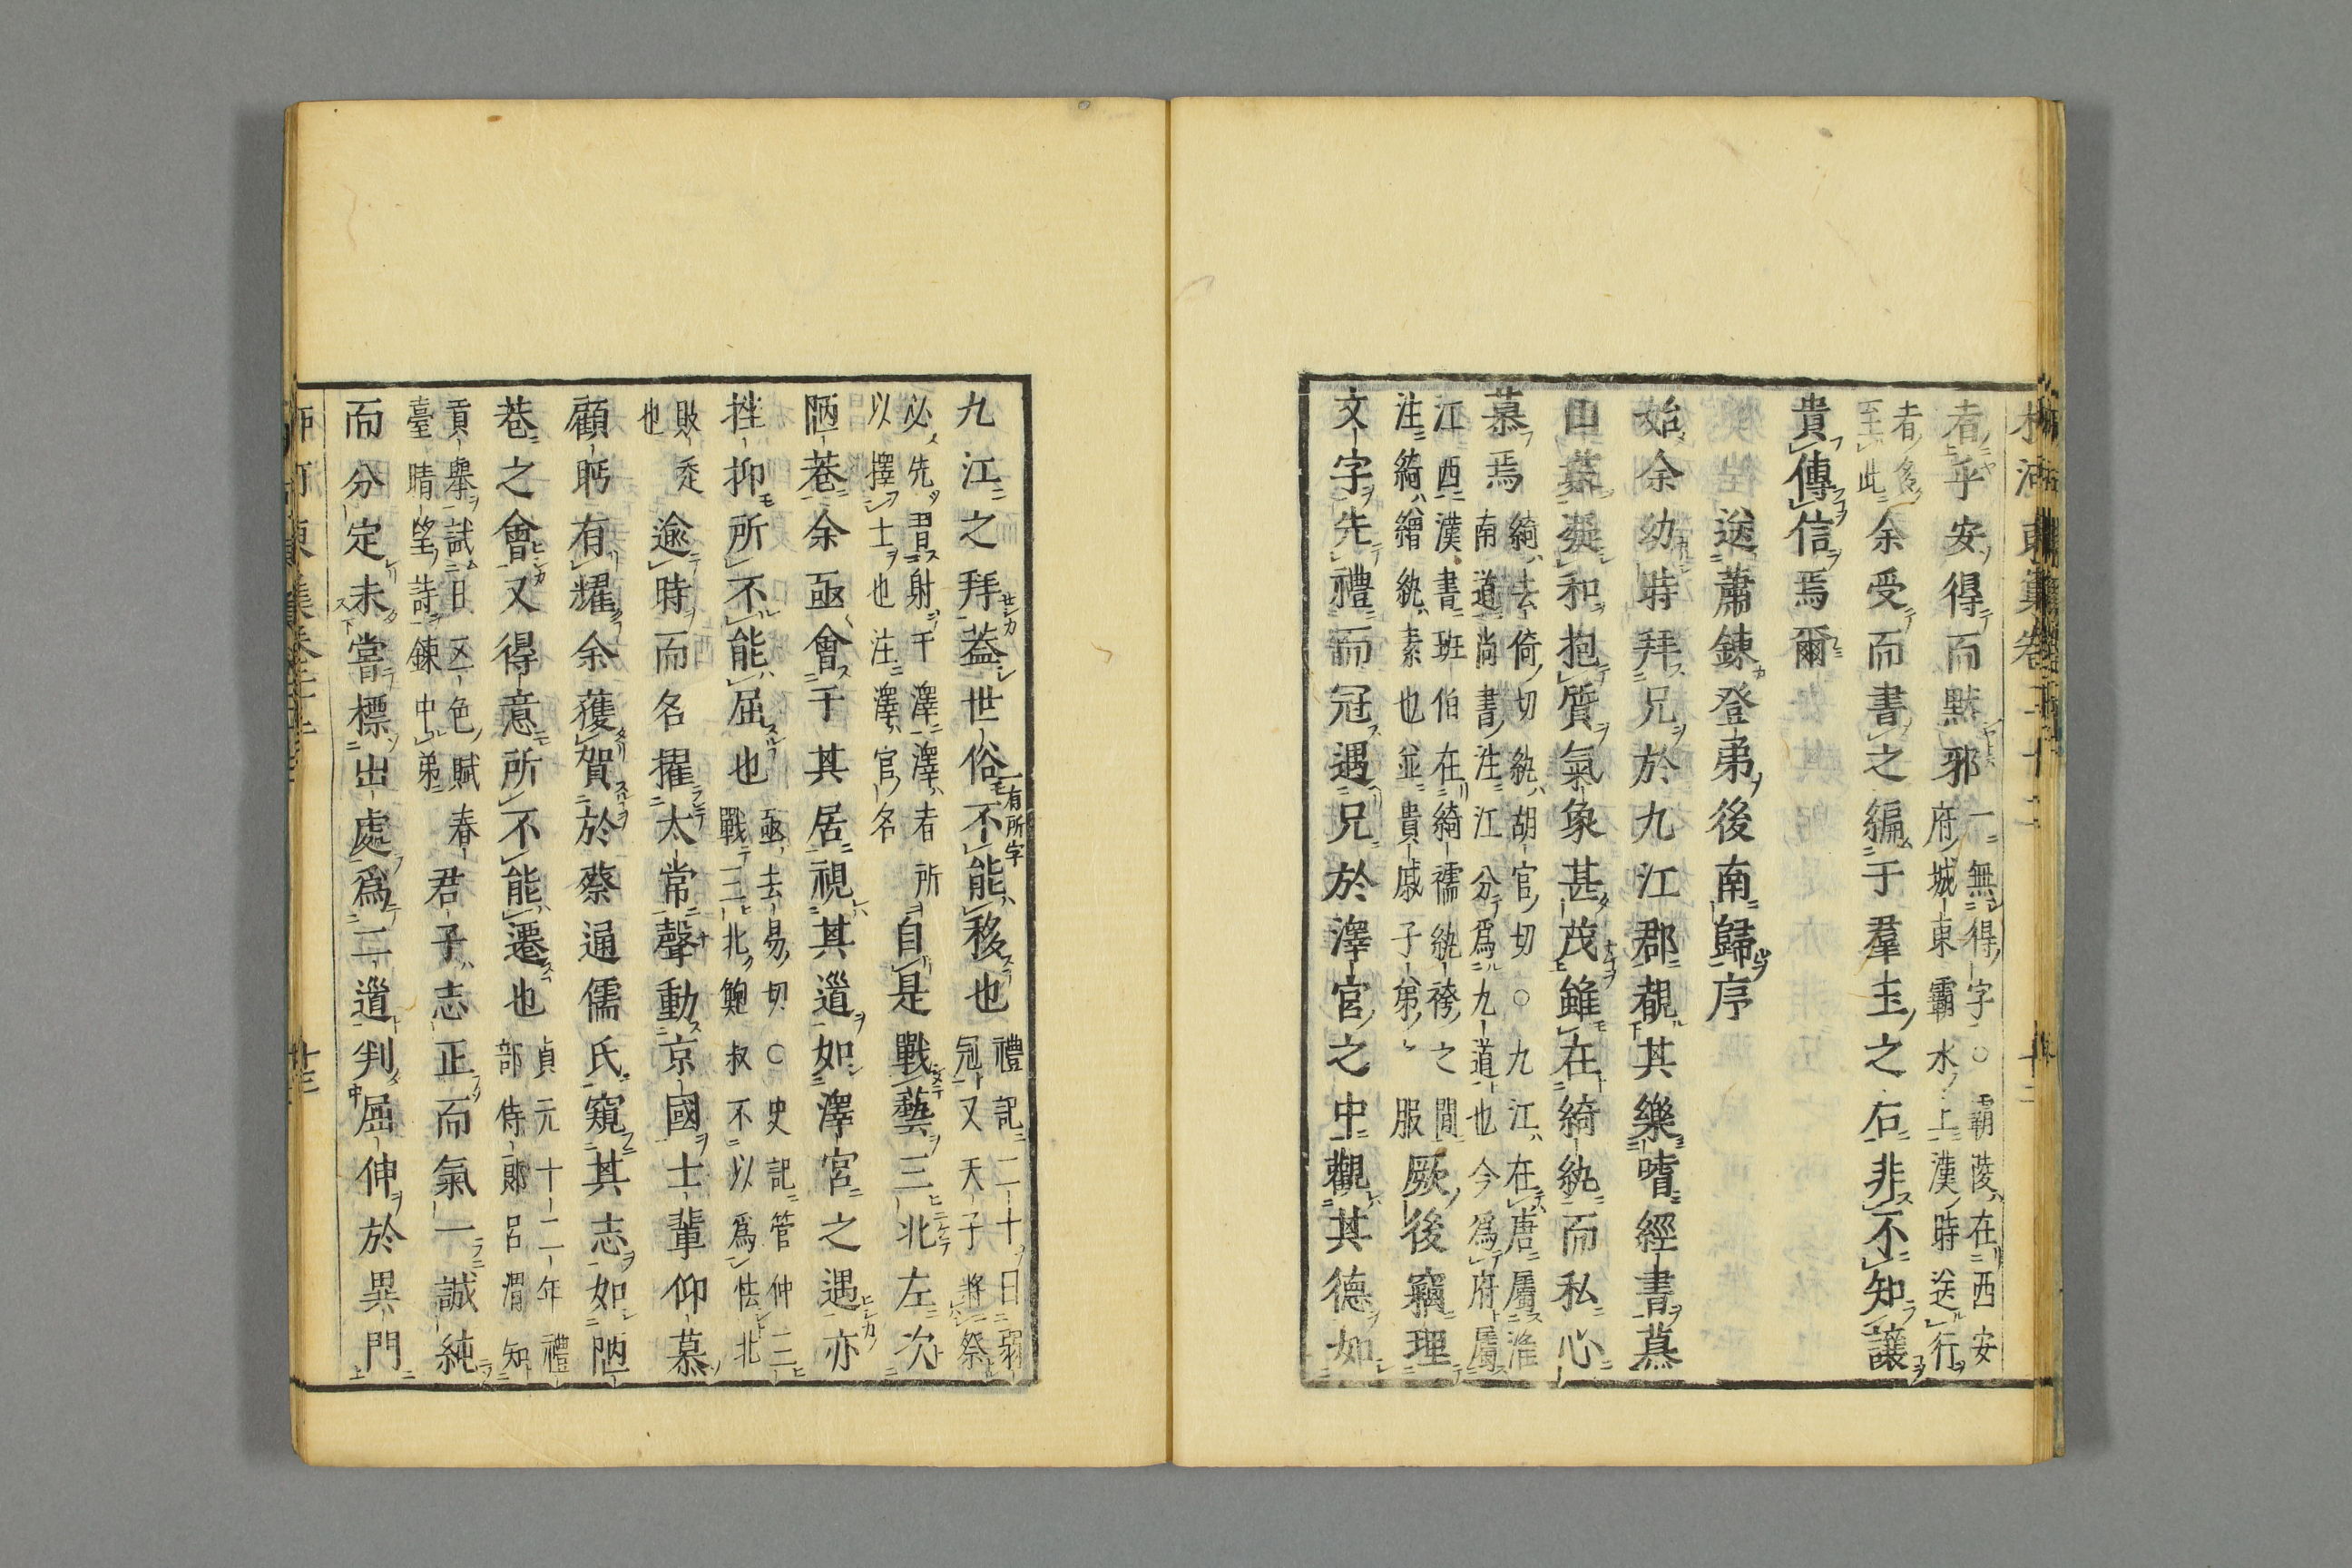 者乎安得而默邪
一無得字○霸陵在西安
府城東霸水上漢時送行
者多
至此
余受而書之編于羣玉之右非不知讓
貴傳信焉爾
送蕭鍊登弟後南歸序
始余幼時拜兄於九江郡覩其樂嗜經書慕
山藪凝和抱質氣象甚茂雖在綺紈而私心
慕焉
綺去倚切紈胡官切○九江在唐屬淮
南道尚書注江分爲九道也今爲府屬
江西漢書班伯在綺襦紈袴之間
注綺繒紈素也並貴戚子弟服
厥後竊理
文字先禮而冠遇兄於澤官之中觀其德如
九江之拜蓋世俗不能移也
一有所字
禮記二十日弱
冠又天子將祭
必先習射于澤澤者所
以擇士也注澤官名
自是戰藝三北左次
陋巷余亟會于其居視其道如澤宮之遇亦
挫抑所不能屈也
亟去易切○史記管仲三
戰三北鮑叔不以爲怯北
敗
也
逾時而名擢太常聲動京國士輩仰慕
顧眄有耀余獲賀於蔡通儒氏窺其志如陋
巷之會又得意所不能遷也
貞元十二年禮
部侍郎呂渭知
貢舉試日五色賦春
臺晴望詩鍊中弟
君子志正而氣一誠純
而分定未嘗標出處爲二道判屈伸於異門